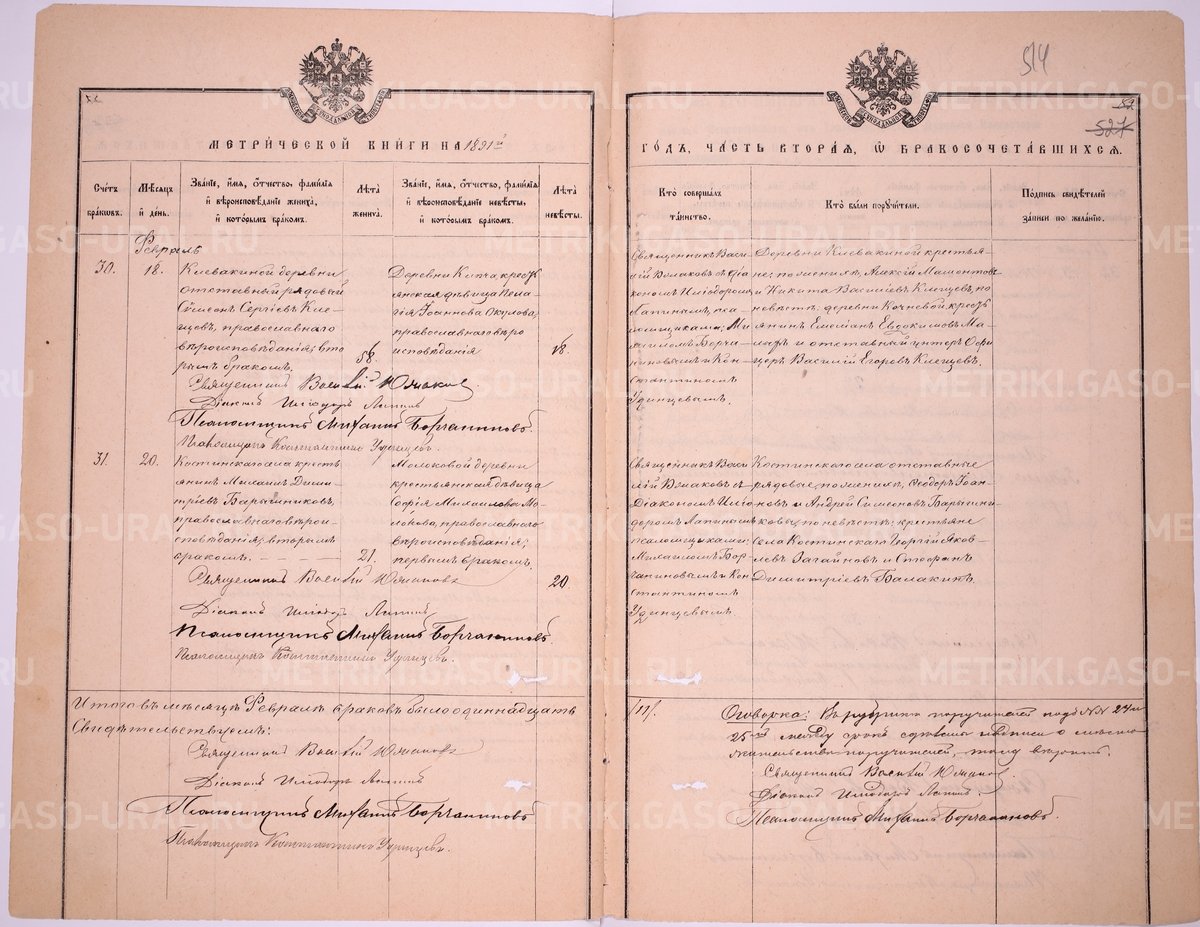 514
52
527
МЕТРИ́ЧЕСКОЙ КНИ́ГИ НА 1891й
ГО́ДЪ, ЧА́СТЬ ВТОРА́Я, Ѡ БРАКОСОЧЕТА́ВШИХСЯ.
Сче́тъ бра́кѡвъ.
Мѣ́сяцъ и де́нь.
Зва́ніе, и́мя, ѻ́тчество, фами́лія и вѣроисповѣ́даніе жениха́, и кото́рымъ бра́комъ.
Лѣ́та жениха́.
Зва́ніе, и́мя, ѻ́тчество, фами́лія и вѣроисповѣ́даніе невѣ́сты, и кото́рымъ бра́комъ.
Лѣ́та невѣ́сты.
Кто̀ соверша́лъ та́инство.
Кто̀ бы́ли поручи́тели.
По́дпись свидѣ́телей за́писи по жела́нію.
Февраль
30.
18.
Клевакиной деревни
отставный рядовый
Симеонъ Сергіевъ Кле-
щовъ, православнаго
вѣроисповѣданія; вто-
рымъ бракомъ.
Деревни Кипча крестъ-
янская дѣвица Пела-
гія Іоаннова Окулова,
православнаго вѣро
исповѣданія
18.
Священникъ Васи-
лій Юмаковъ съ діа-
кономъ Иліодоромъ
Лапинымъ, пса-
ломщиками: Ми-
хаиломъ Борча-
ниновымъ и Кон-
стантиномъ
Удинцевымъ.
Деревни Клевакиной крестья-
не; по женихѣ, Алексій Мамонтовъ
и Никита Васильевъ Клещевъ, по
невѣстѣ: деревни Кочневой, кресть
янинъ Емеліанъ Евдокимовъ Ма-
и отставный унтеръ Офи-
церъ Василій Егоровъ Клещевъ.
Священникъ Василій Юмаковъ.
Діаконъ Иліодоръ Лапинъ
Псаломщикъ Михаилъ Борчаниновъ.
Псаломщикъ Константинъ Удинцевъ.
31.
20.
Костинскаго села кресть
янинъ Михаилъ Дими-
тріевъ Барышниковъ,
православнаго вѣрои-
сповѣданія; вторымъ
бракомъ.
21.
Молоковой деревни
крестьянская дѣвица
Софія Михаилова Мо-
локова, православнаго
вѣроисповѣданія;
первымъ бракомъ.
20
Священникъ Васи-
лій Юмаковъ съ
Діакономъ Иліо-
доромъ Лапинымъ
псаломщиками:
Михаиломъ Бор-
чаниновымъ и Кон
стантиномъ
Удинцевымъ
Костинскаго села отставные
рядовые, по женихѣ, Ѳеодоръ Іоан-
новъ и Андрей Симеоновъ Барышни-
ковы; по невѣстѣ: крестьяне
села Костинскаго Георгій Яков-
левъ Загайновъ и Стефанъ
Димитріевъ Балакинъ.
Священникъ Василій Юмаковъ
Діаконъ Иліодоръ Лапинъ
Псаломщикъ Михаилъ Борчаниновъ
Псаломщикъ Константинъ Удинцевъ.
Итого въ мѣсяцѣ Февралѣ браковъ было одиннадцать
Свидѣтельствуемъ:
Священникъ Василій Юмаковъ
Діаконъ Иліодоръ Лапинъ
Псаломщикъ Михаилъ Борчаниновъ
Псаломщикъ Константинъ Удинцевъ.
/11/.
Оговорка: Въ рубрикѣ поручителей подъ №№ 24 и
25мъ между строкъ сдѣланы надписи о мѣстѣ
жительства поручителей, тому вѣрить.
Священникъ Василій Юмаковъ.
Діаконъ Иліодоръ Лапинъ.
Псаломщикъ Михаилъ Борчаниновъ.
METRIKI.GASO-URAL.RU